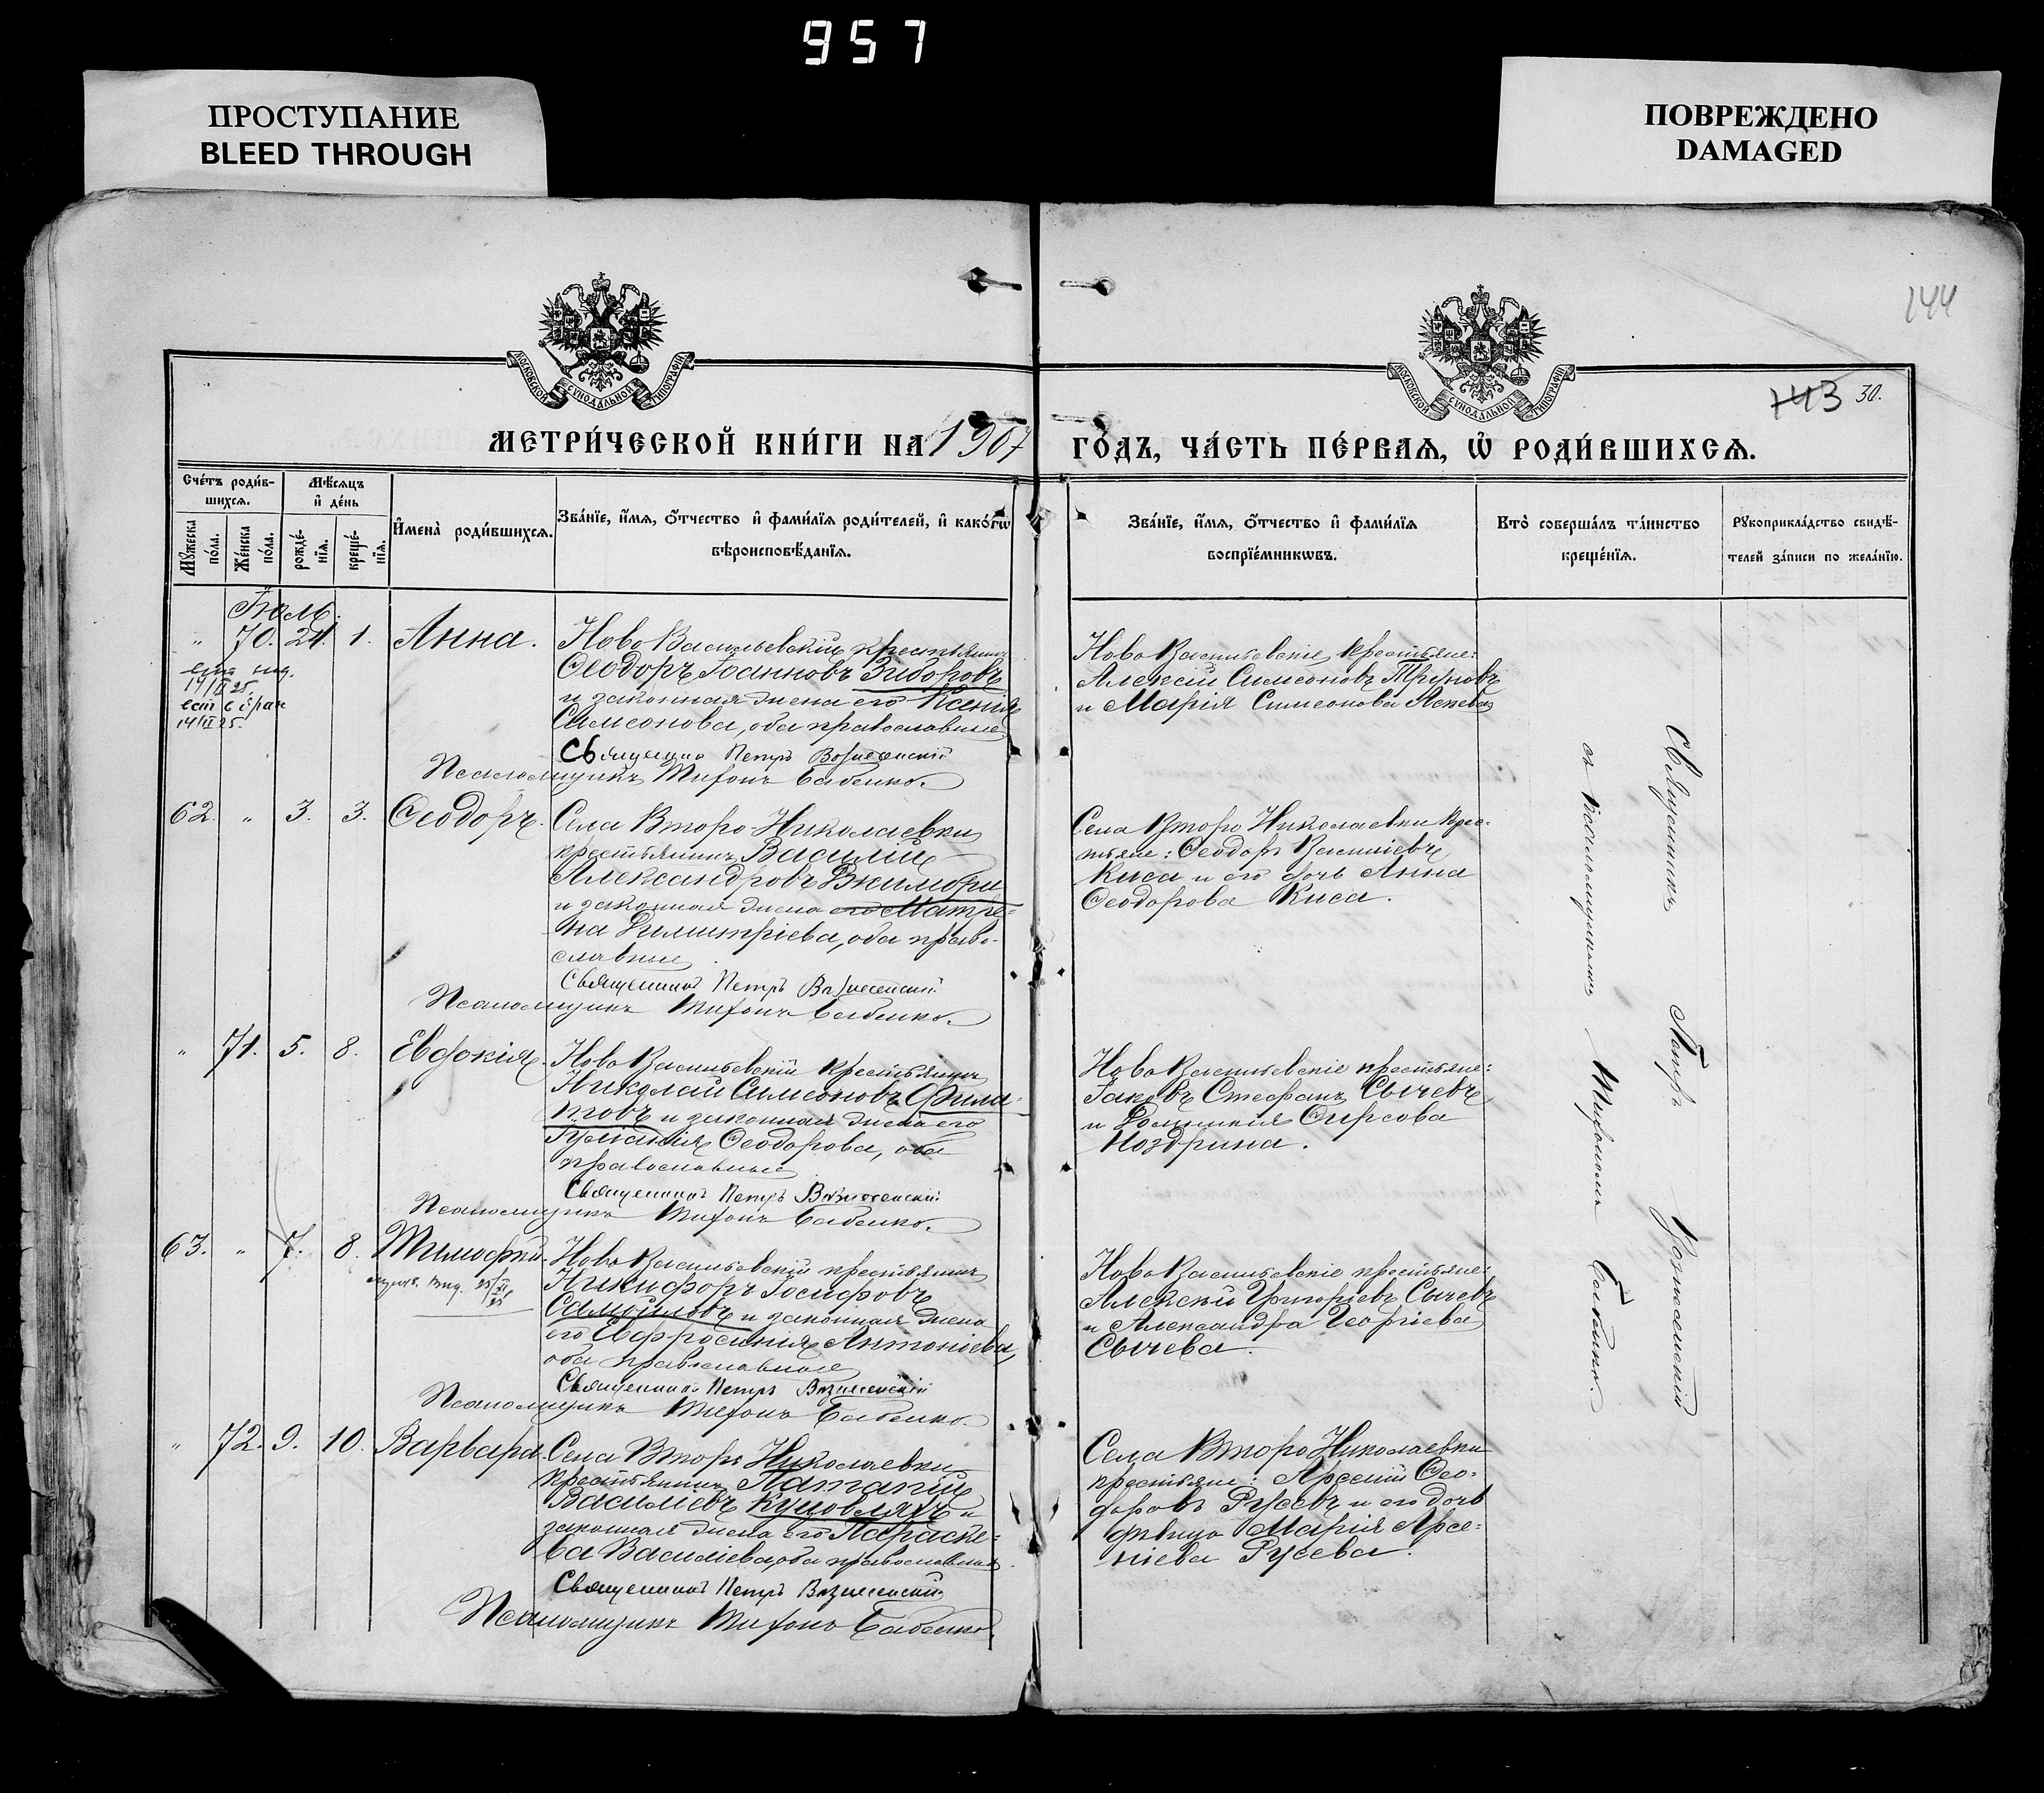 957
ПРОСТУПАНИЕ
BLEED THROUGH
ПОВРЕЖДЕНО
DAMAGED
144
143 30.
МОСКОВСКОЙ СѴНОДАЛЬНОЙ ТИПОГРАФІИ
МОСКОВСКОЙ СѴНОДАЛЬНОЙ ТИПОГРАФІИ
МЕТРИ́ЧЕСКОЙ КНИ́ГИ НА 1907 ГО́ДЪ, ЧА́СТЬ ПЕ́РВАЯ, Ѡ҆ РОДИ́ВШИХСЯ.
Сче́тъ роди́в-
шихся.
Мѣ́сяцъ
и҆ де́нь
Мꙋ́жеска
по́ла.
Же́нска
по́ла.
рожде́-
нїя.
креще́-
нїя.
И҆мена̀ роди́вшихся.
Зва́нїе, и҆́мя, ѻ҆́тчество и҆ фами́лїя роди́телей, и҆ како́гѡ
вѣроисповѣ́данїя.
Зва́нїе, и҆́мя, ѻ҆́тчество и҆ фами́лїя
воспрїе́мникѡвъ.
Кто̀ соверша́лъ та́инство
креще́нїя.
Рꙋкоприкла́дство свидѣ́-
телей за́писи по жела́нїю.
" 70. 24. 1. Анна.
14/II 25.
14/II 25.
Ново Васильевскій крестьянинъ
Ѳеодоръ Іоанновъ Зидоровъ
и законная жена его Ксенія
Симеонова, оба православные
Священникъ Петръ Вознесенскій
Псаломщикъ Тихонъ Бабенко.
Ново Васильевскіе крестьяне:
Алексій Симеоновъ
и Марія Симеонова
62. " 3. 3. Ѳеодоръ.
Села Второ-Николаевки
крестьянинъ Василій
Александровъ
и законная жена его Матре-
на Димитріева, оба право-
славные
Священникъ Петръ Вознесенскій
Псаломщикъ Тихонъ Бабенко.
Села Второ Николаевки крес-
тьяне: Ѳеодоръ Васильевъ
Киса и его дочь Анна
Ѳеодорова Киса.
" 71. 5. 8. Евдокія.
Ново Васильевскій крестьянинъ
Николай Симеоновъ Фила-
товъ и законная жена его
Іуліанія Ѳеодорова, оба
православные
Священникъ Петръ Вознесенскій
Псаломщикъ Тихонъ Бабенко.
Ново Васильевскіе крестьяне:
Іаковъ Стефанъ Сычевъ
и Домникія Ѳирсова
Ноздрина.
63. " 7. 8. Тимофей.
Ново Васильевскій крестьянинъ
Никифоръ Іосифовъ
Самойловъ и законная жена
его Евфросинія Антоніева,
оба православные
Священникъ Петръ Вознесенскій
Псаломщикъ Тихонъ Бабенко.
Ново Васильевскіе крестьяне:
Алексій Григоріевъ Сычевъ
и Александра Георгіева
Сычева.
" 72. 9. 10. Варвара.
Села Второ Николаевки
крестьянинъ Патапій
Васильевъ Куцовляхъ и
законная жена его Параске-
ва Василіева, оба православные.
Священникъ Петръ Вознесенскій
Псаломщикъ Тихонъ Бабенко.
Села Второ Николаевки
крестьяне: Арсеній Ѳео-
доровъ Русевъ и его дочь
дѣвица Марія Арсе-
ніева Русева.
Священникъ Петръ Вознесенскій
съ псаломщикомъ Тихономъ Бабенко.